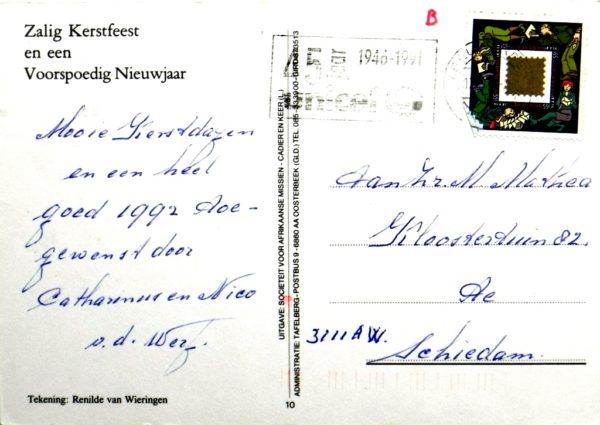 Zalig Kerstfeest
en een
Voorspoedig Nieuwjaar
Mooie Kerstdagen
en een heel
goed 1992 toe-
gewenst door
Catharinus en Nico
v.d. Werf.
Tekening: Renilde van Wieringen
UITGAVE: SOCIETEIT VOOR AFRIKAANSE MISSIEN - CADIER EN KEER (L.)
ADMINISTRATIE: TAFELBERG - POSTBUS 9 - 6860 AA OOSTERBEEK (GLD.) TEL. 085-
10
B
jaar
1946-1991
Aan Zr. M. Mathea
Kloostertuin 82.
te
3111 AW.
Schiedam.